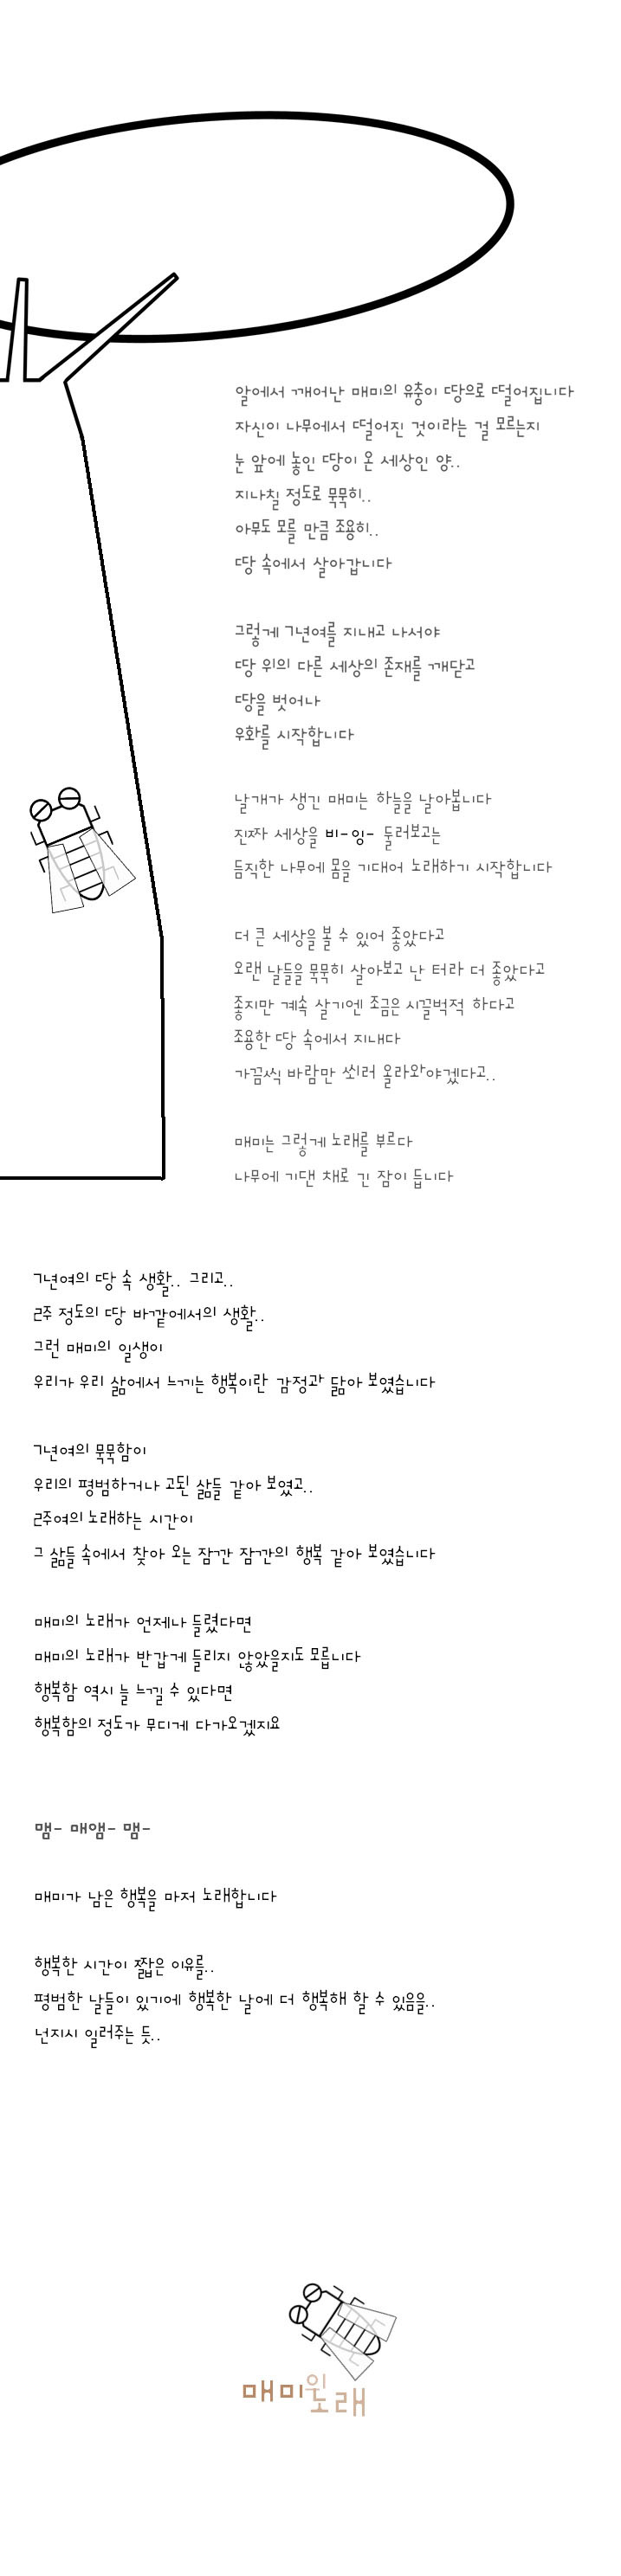 알에서 깨어난 매미의 유충이 땅으로 떨어집니다
자신이 나무에서 떨어진 것이라는 걸 모르는지
눈 앞에 놓인 땅이 온 세상인 양..
지나칠 정도로 묵묵히..
아무도 모를 만큼 조용히..
땅 속에서 살아갑니다
그렇게 7년여를 지내고 나서야
땅 위의 다른 세상의 존재를 깨닫고
땅을 벗어나
우화를 시작합니다
날개가 생긴 매미는 하늘을 날아봅니다
진짜 세상을 비-잉- 둘러보고는
듬직한 나무에 몸을 기대어 노래하기 시작합니다
더 큰 세상을 볼 수 있어 좋았다고
오랜 날들을 묵묵히 살아보고 난 터라 더 좋았다고
좋지만 계속 살기엔 조금은 시끌벅적 하다고
조용한 땅 속에서 지내다
가끔씩 바람만 쐬러 올라와야겠다고..
매미는 그렇게 노래를 부르다
나무에 기댄 채로 긴 잠이 듭니다
7년여의 땅 속 생활.. 그리고..
2주 정도의 땅 바깥에서의 생활..
그런 매미의 일생이
우리가 우리 삶에서 느끼는 행복이란 감정과 닮아 보였습니다
7년여의 묵묵함이
우리의 평범하거나 고된 삶들 같아 보였고..
2주여의 노래하는 시간이
그 삶들 속에서 찾아 오는 잠깐 잠깐의 행복 같아 보였습니다
매미의 노래가 언제나 들렸다면
매미의 노래가 반갑게 들리지 않았을지도 모릅니다
행복함 역시 늘 느낄 수 있다면
행복함의 정도가 무디게 다가오겠지요
맴- 매앰- 맴-
매미가 남은 행복을 마저 노래합니다
행복한 시간이 짧은 이유를..
평범한 날들이 있기에 행복한 날에 더 행복해 할 수 있음을..
넌지시 일러주는 듯..
매미의 노래